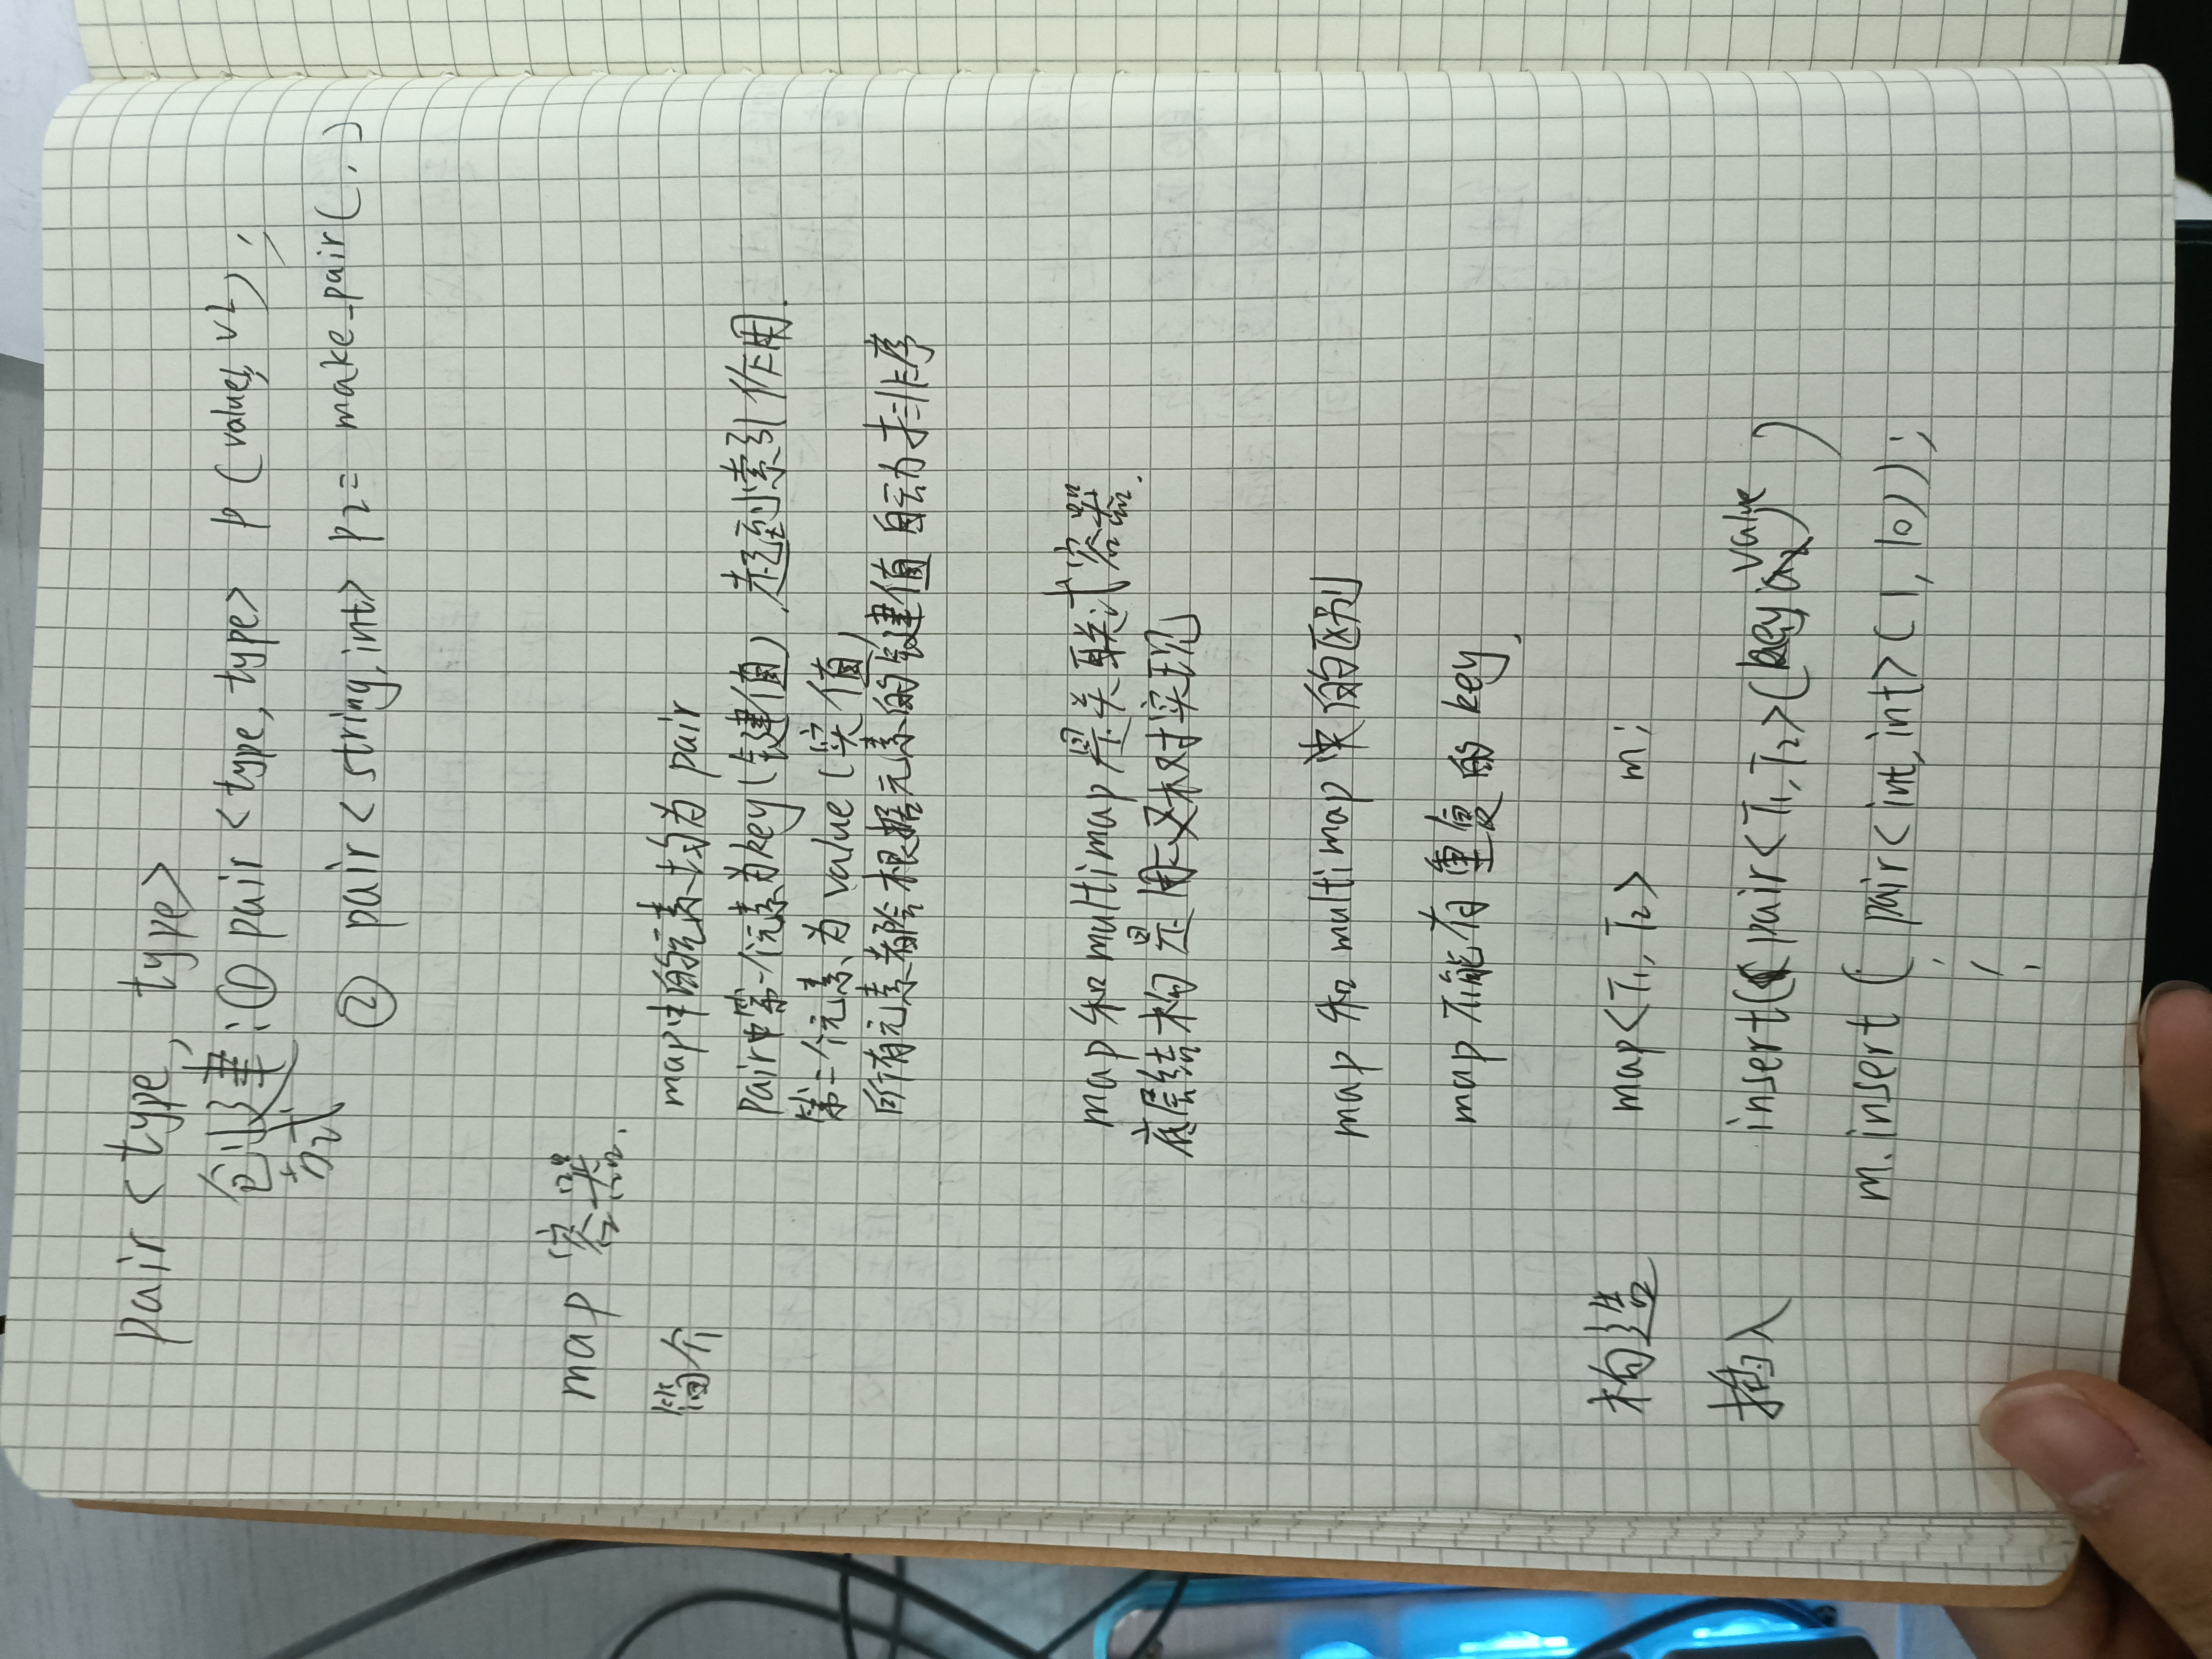 pair < type, type>
创建:① pair < type, type> p ( value1, v2 ) ;
方式
② pair < string, int> p2 = make_pair( , )
map 容器.
简介 map中的元素均为 pair
pair中第一个元素为key(键值),起到索引作用.
第二个元素为 value (实值)
所有元素都会根据元素的键值自动排序
map 和 multimap 是关联式容器.
底层结构是用二叉树实现
map 和 multimap 的区别
map 不能有重复的 key.
构造 map<T1, T2> m;
插入 insert( pair<T1, T2>(key, value) )
m.insert ( pair<int, int> ( 1, 10) ) ;